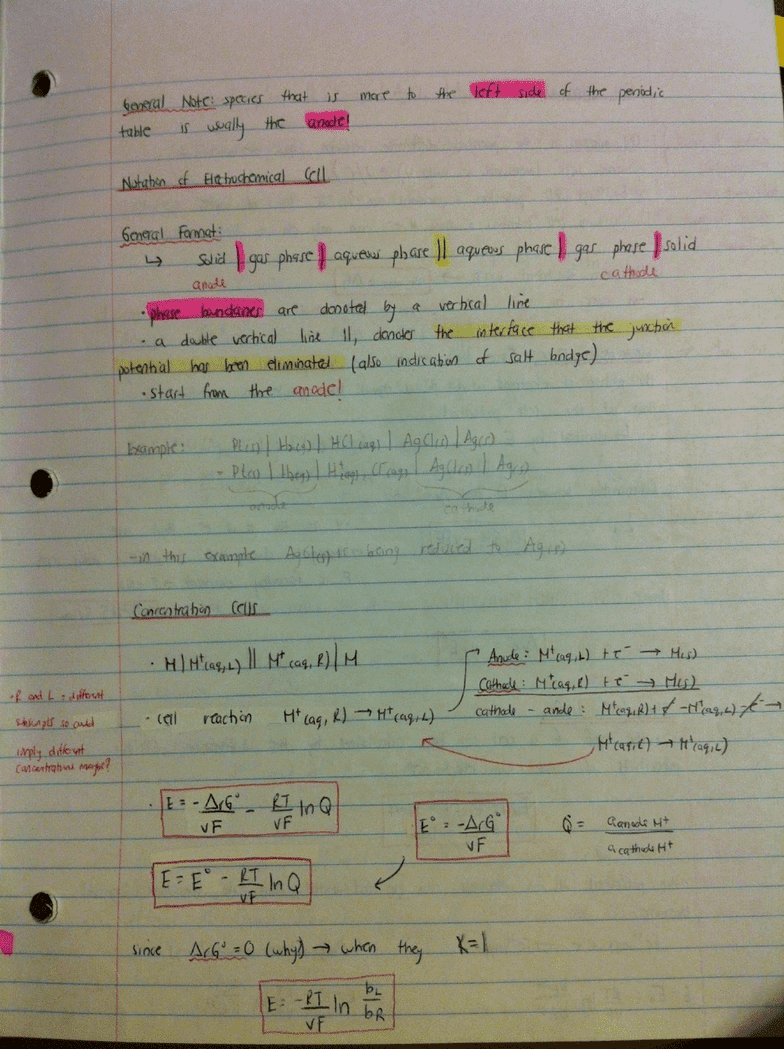 General Note: species that is more to the left side of the periodic
table is usually the anode!
Notation of Electrochemical Cell
General Format:
↳ Solid | gas phase | aqueous phase || aqueous phase | gas phase | solid
anode cathode
· phase boundaries are denoted by a vertical line
· a double vertical line ||, denotes the interface that the junction
potential has been eliminated (also indication of salt bridge)
· start from the anode!
Example: Pt(s) | H₂(g) | HCl(aq) | AgCl(s) | Ag(s)
= Pt(s) | H₂(g) | H⁺(aq), Cl⁻(aq) | AgCl(s) | Ag(s)
anode cathode
- in this example AgCl(s) is being reduced to Ag(s)
Concentration Cells
· M | M⁺(aq, L) || M⁺(aq, R) | M
Anode: M⁺(aq, L) + e⁻ → M(s)
Cathode: M⁺(aq, R) + e⁻ → M(s)
· cell reaction M⁺(aq, R) → M⁺(aq, L)
cathode - anode: M⁺(aq, R) + e⁻ - M⁺(aq, L) - e⁻ →
M⁺(aq, R) → M⁺(aq, L)
· R and L = different
so could
imply different
concentrations
· E = -ΔrG°/νF - RT/νF ln Q
E° = -ΔrG°/νF
Q = a anode M⁺ / a cathode M⁺
E = E° - RT/νF ln Q
since ΔrG° = 0 (why?) → when they K=1
E = -RT/νF ln bL/bR